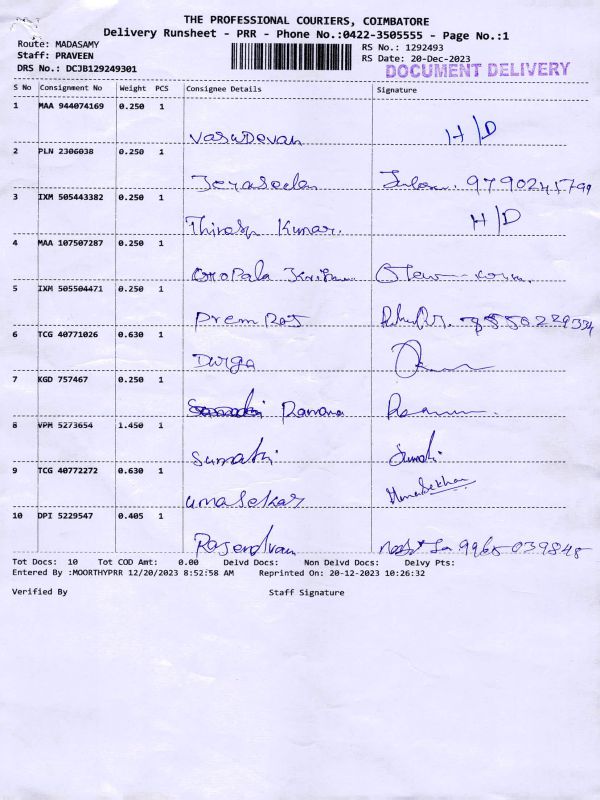 THE PROFESSIONAL COURIERS, COIMBATORE
Delivery Runsheet - PRR - Phone No.:0422-3505555 - Page No.:1
Route: MADASAMY
Staff: PRAVEEN
DRS No.: DCJB129249301
RS No.: 1292493
RS Date: 20-Dec-2023
DOCUMENT DELIVERY
S No Consignment No Weight PCS Consignee Details Signature
1 MAA 944074169 0.250 1
Vasudevan H/D
2 PLN 2306038 0.250 1
Jeyaseelan
3 IXM 505443382 0.250 1
Kumar. H/D
4 MAA 107507287 0.250 1
5 IXM 505504471 0.250 1
Prem Raj
6 TCG 40771026 0.630 1
Durga
7 KGD 757467 0.250 1
Ramana
8 VPM 5273654 1.450 1
Sumathi Sumathi
9 TCG 40772272 0.630 1
Umasekar
10 DPI 5229547 0.405 1
Rajendran 9965039848
Tot Docs: 10 Tot COD Amt: 0.00 Delvd Docs: Non Delvd Docs: Delvy Pts:
Entered By :MOORTHYPRR 12/20/2023 8:52:58 AM Reprinted On: 20-12-2023 10:26:32
Verified By Staff Signature